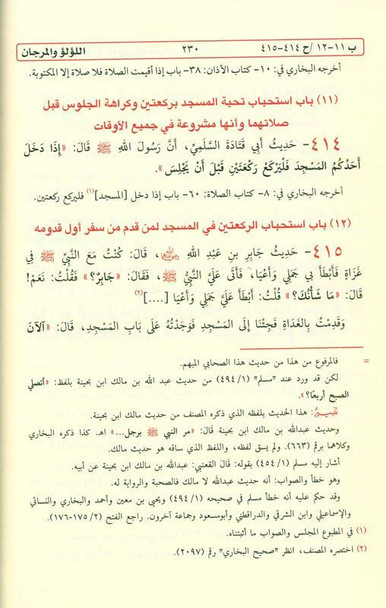 ب ١١-١٢ /ح ٤١٤-٤١٥ ٢٣٠ اللؤلؤ والمرجان
أخرجه البخاري في: ١٠- كتاب الأذان: ٣٨- باب إذا أقيمت الصلاة فلا صلاة إلا المكتوبة.
(١١) باب استحباب تحية المسجد بركعتين وكراهة الجلوس قبل
صلاتهما وأنها مشروعة في جميع الأوقات
٤١٤- حَدِيثُ أَبِي قَتَادَةَ السَّلَمِيِّ، أَنَّ رَسُولَ اللهِ ﷺ قَالَ: «إِذَا دَخَلَ
أَحَدُكُمُ الْمَسْجِدَ فَلْيَرْكَعْ رَكْعَتَيْنِ قَبْلَ أَنْ يَجْلِسَ».
أخرجه البخاري في: ٨- كتاب الصلاة: ٦٠- باب إذا دخل [المسجد](١) فليركع ركعتين.
(١٢) باب استحباب الركعتين في المسجد لمن قدم من سفر أول قدومه
٤١٥- حَدِيثُ جَابِرِ بْنِ عَبْدِ اللهِ، قَالَ: كُنْتُ مَعَ النَّبِيِّ ﷺ فِي
غَزَاةٍ فَأَبْطَأَ بِي جَمَلِي وَأَعْيَا، فَأَتَى عَلَيَّ النَّبِيُّ ﷺ، فَقَالَ: «جَابِرٌ؟» فَقُلْتُ: نَعَمْ!
قَالَ: «مَا شَأْنُكَ؟» قُلْتُ: أَبْطَأَ عَلَيَّ جَمَلِي وَأَعْيَا [....](٢)
وَقَدِمْتُ بِالْغَدَاةِ فَجِئْنَا إِلَى الْمَسْجِدِ فَوَجَدْتُهُ عَلَى بَابِ الْمَسْجِدِ، قَالَ: «آلْآنَ
= فالمرفوع من هذا من حديث هذا الصحابي المبهم.
لكن قد ورد عند "مسلم" (١/ ٤٩٤) من حديث عبد الله بن مالك ابن بحينة بلفظ: «أتصلي
الصبح أربعًا؟».
تنبيه: هذا الحديث بلفظه الذي ذكره المصنف من حديث مالك ابن بحينة.
وحديث عبدالله بن مالك ابن بحينة قال: «مر النبي ﷺ برجل...» اهـ. كذا ذكره البخاري
وكلاهما برقم (٦٦٣). ولم يسق لفظه، واللفظ الذي ساقه هو حديث مالك.
أشار إليه مسلم (١/ ٤٥٤) بقوله: قال القعنبي: عبدالله بن مالك ابن بحينة عن أبيه.
وهو خطأ والصواب: أنه حديث عبدالله لا مالك فالصحبة والرواية له.
وقد حكم عليه أنه خطأ مسلم في صحيحه (١/ ٤٩٤) ويحيى بن معين وأحمد والبخاري والنسائي
والإسماعيلي وابن الشرقي والدراقطني وأبومسعود وجماعة آخرون. راجع الفتح (٢/ ١٧٥-١٧٦).
(١) في المطبوع المجلس والصواب ما أثبتناه.
(٢) اختصره المصنف، انظر "صحيح البخاري" رقم (٢٠٩٧).